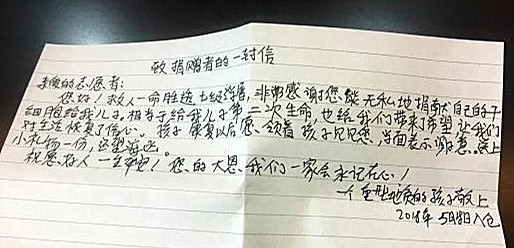 致捐赠者的一封信
亲爱的志愿者:
您好!救人一命胜造七级浮屠,非常感谢您能无私地捐献自己的干
细胞给我儿子,相当于给我儿子第二次生命,也给我们带来了希望,让我们
对生活恢复了信心。孩子康复以后愿领着孩子见见您,当面表示谢意。送上
小礼物一份,还望海涵
祝愿好人一生平安!您的大恩,我们一家会永记在心!
一个重型地贫的孩子敬上
2018年5月8日入仓